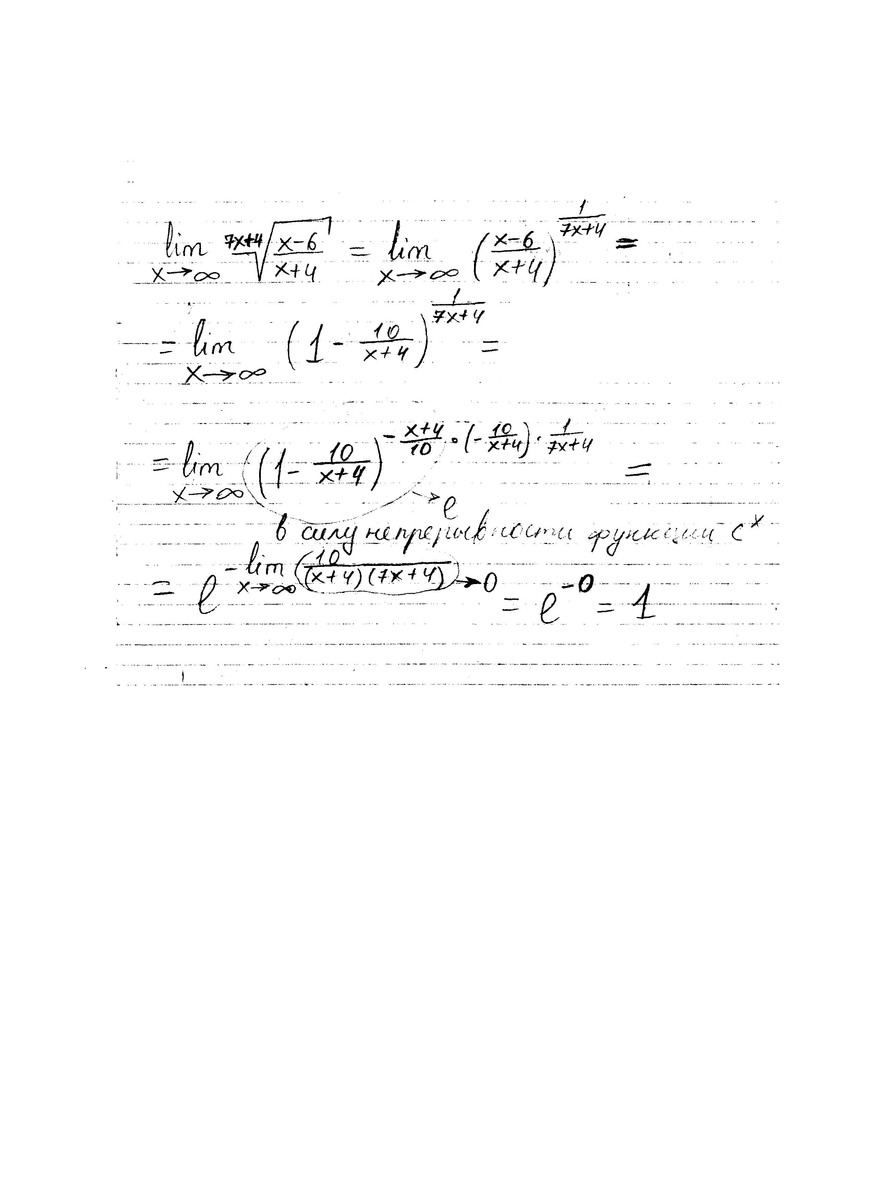 lim x→∞ ⁷ˣ⁺⁴√((x-6)/(x+4)) = lim x→∞ ((x-6)/(x+4))^(1/(7x+4)) =
= lim x→∞ (1 - 10/(x+4))^(1/(7x+4)) =
= lim x→∞ ((1 - 10/(x+4))^(-(x+4)/10 · (-10/(x+4)) · 1/(7x+4)) =
→ e
в силу непрерывности функции e^x
= e^(-lim x→∞ (10/((x+4)(7x+4))) → 0) = e^(-0) = 1